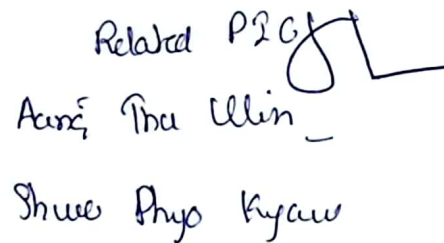 Related PIC
Aung Thu Win
Shwe Phyo Kyaw